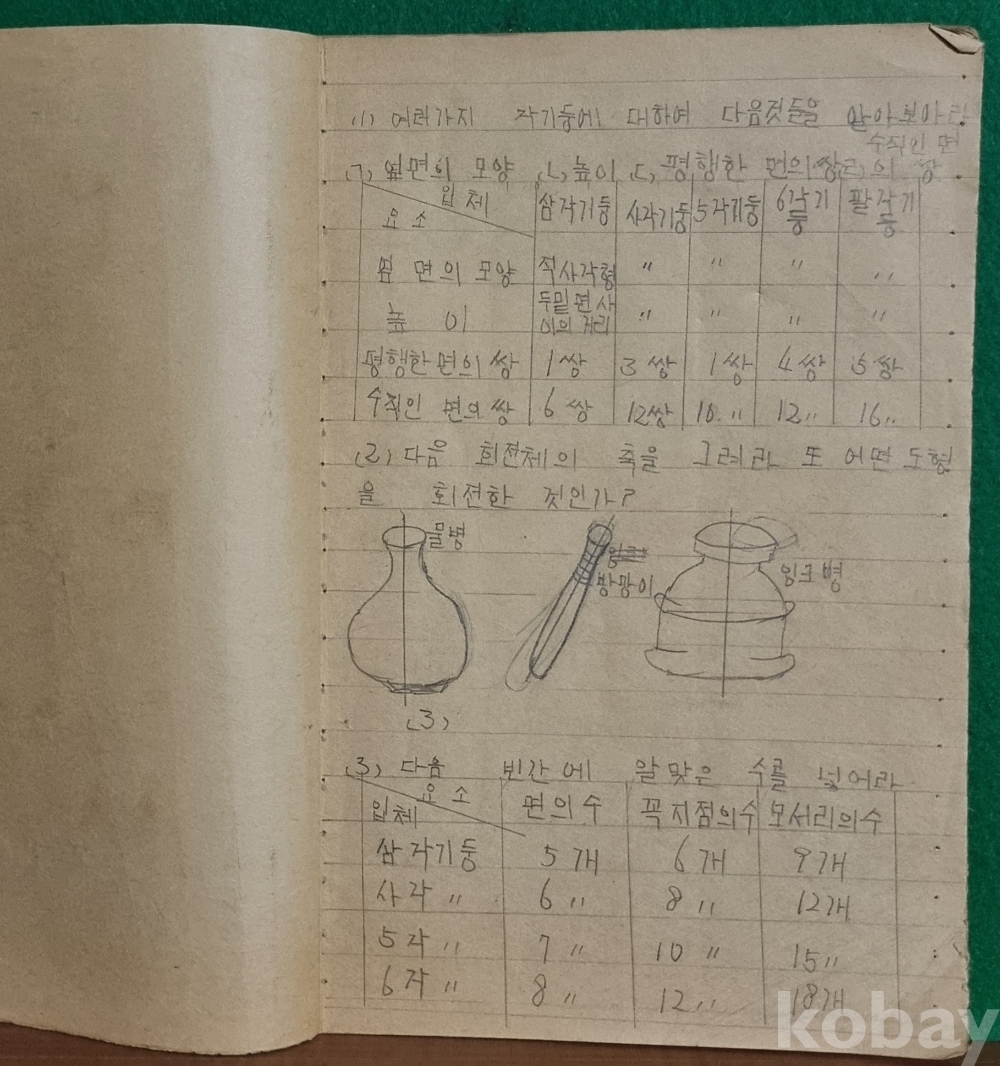 (1) 여러가지 각기둥에 대하여 다음것들을 알아보아라
수직인 면
(ㄱ) 옆면의 모양 (ㄴ) 높이 (ㄷ) 평행한 면의 쌍 (ㄹ) 의 쌍
입체 요소 삼각기둥 사각기둥 5각기둥 6각기둥 팔각기둥
옆 면의 모양 직사각형 〃 〃 〃 〃
높 이 두밑면사이의 거리 〃 〃 〃 〃
평행한 면의 쌍 1쌍 3쌍 1쌍 4쌍 5쌍
수직인 면의 쌍 6쌍 12쌍 10〃 12〃 16〃
(2) 다음 회전체의 축을 그려라 또 어떤 도형
을 회전한 것인가?
물병
방망이
잉크병
(3)
(3) 다음 빈간에 알맞은 수를 넣어라
요소 입체 면의수 꼭지점의수 모서리의수
삼각기둥 5개 6개 9개
사각 〃 6〃 8〃 12개
5각〃 7〃 10〃 15〃
6각〃 8〃 12〃 18개
kobay